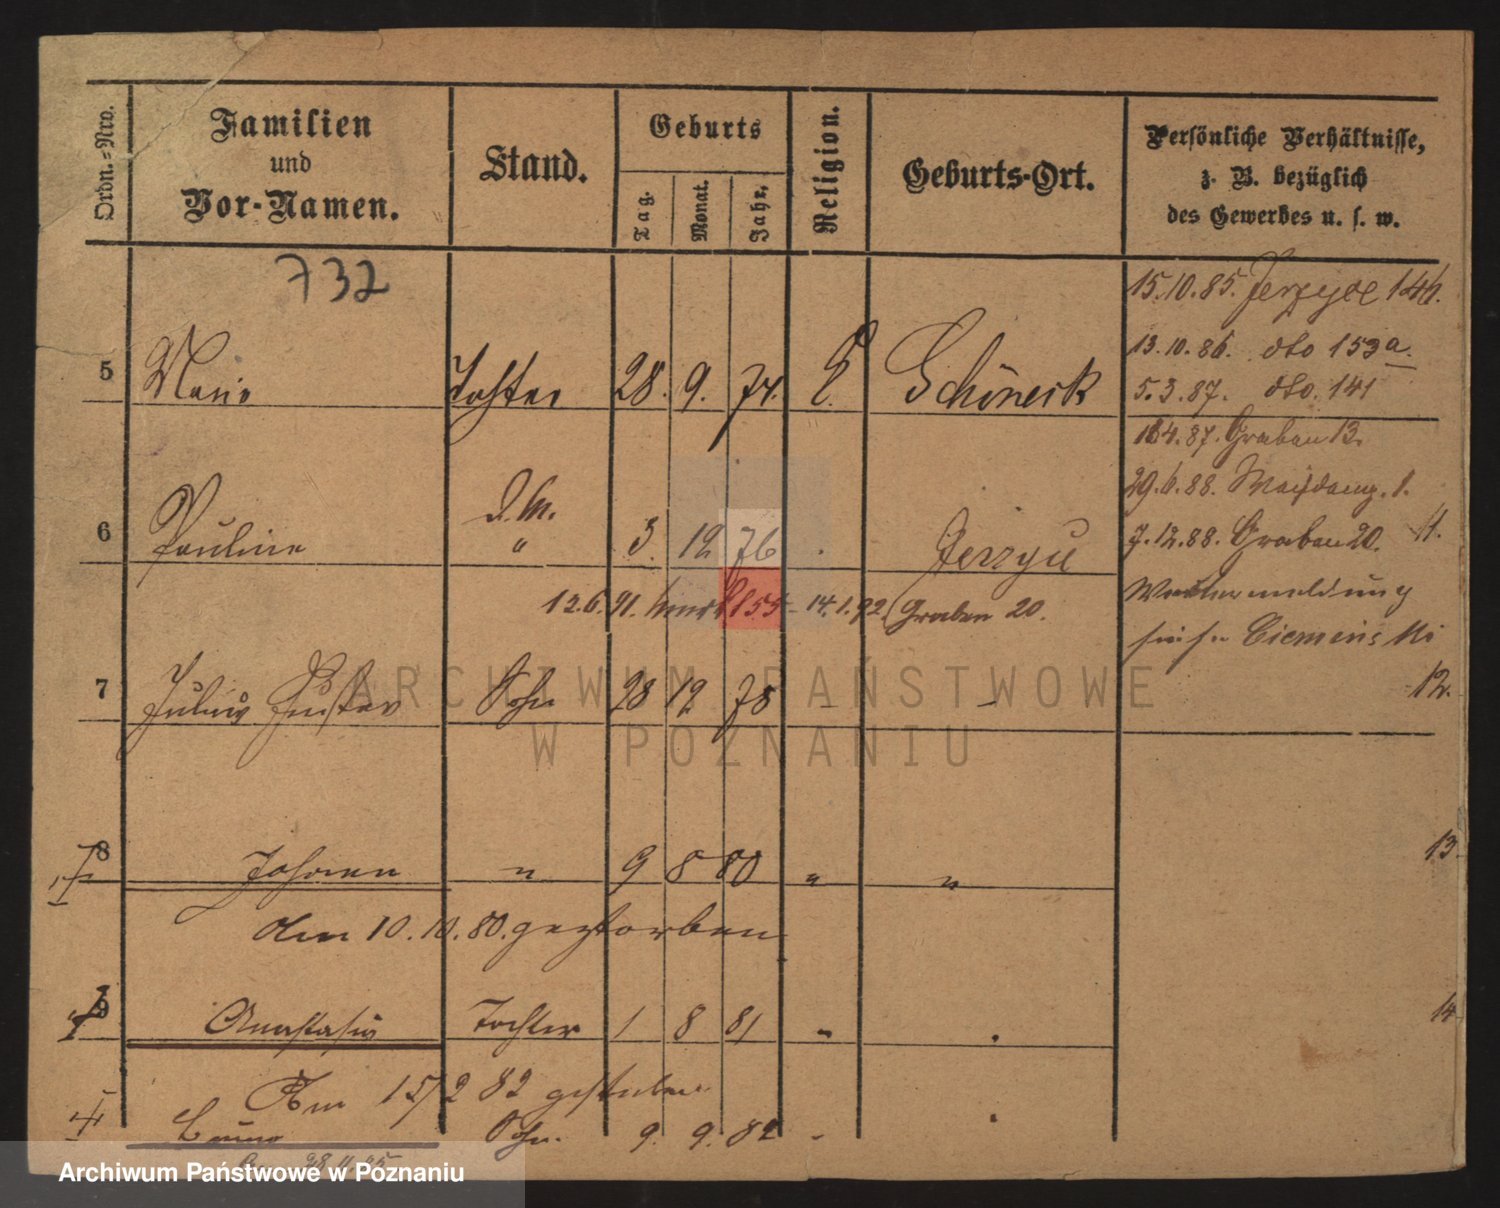 Ordn.-Nro.
Familien
und
Vor-Namen.
Stand.
Geburts
Tag.
Monat.
Jahr.
Religion.
Geburts-Ort.
Persönliche Verhältnisse,
z. B. bezüglich
des Gewerbes u. s. w.
732
15.10.85. Jerzyce 14b.
13.10.86. dto 153a.
5 Marie Tochter 28. 9. 74. E. Schöneck
5.3.87. dto. 141
Graben 13.
29.6.88. 1.
6 Pauline " 3. 12 76 Jerzyce
7.12.88. Graben 20. 11.
12.6.91. 14.1.92. Graben 20.
7 Julius Gustav Sohn 28 12 78 -
12.
8 Johann " 9 8 80 " "
13.
den 10.10.80. gestorben
9 Anastasia Tochter 1 8 81 "
14
Am 15/2 82 gestorben
Bruno Sohn. 9. 9. 82 -
ARCHIWUM PAŃSTWOWE
W POZNANIU
Archiwum Państwowe w Poznaniu